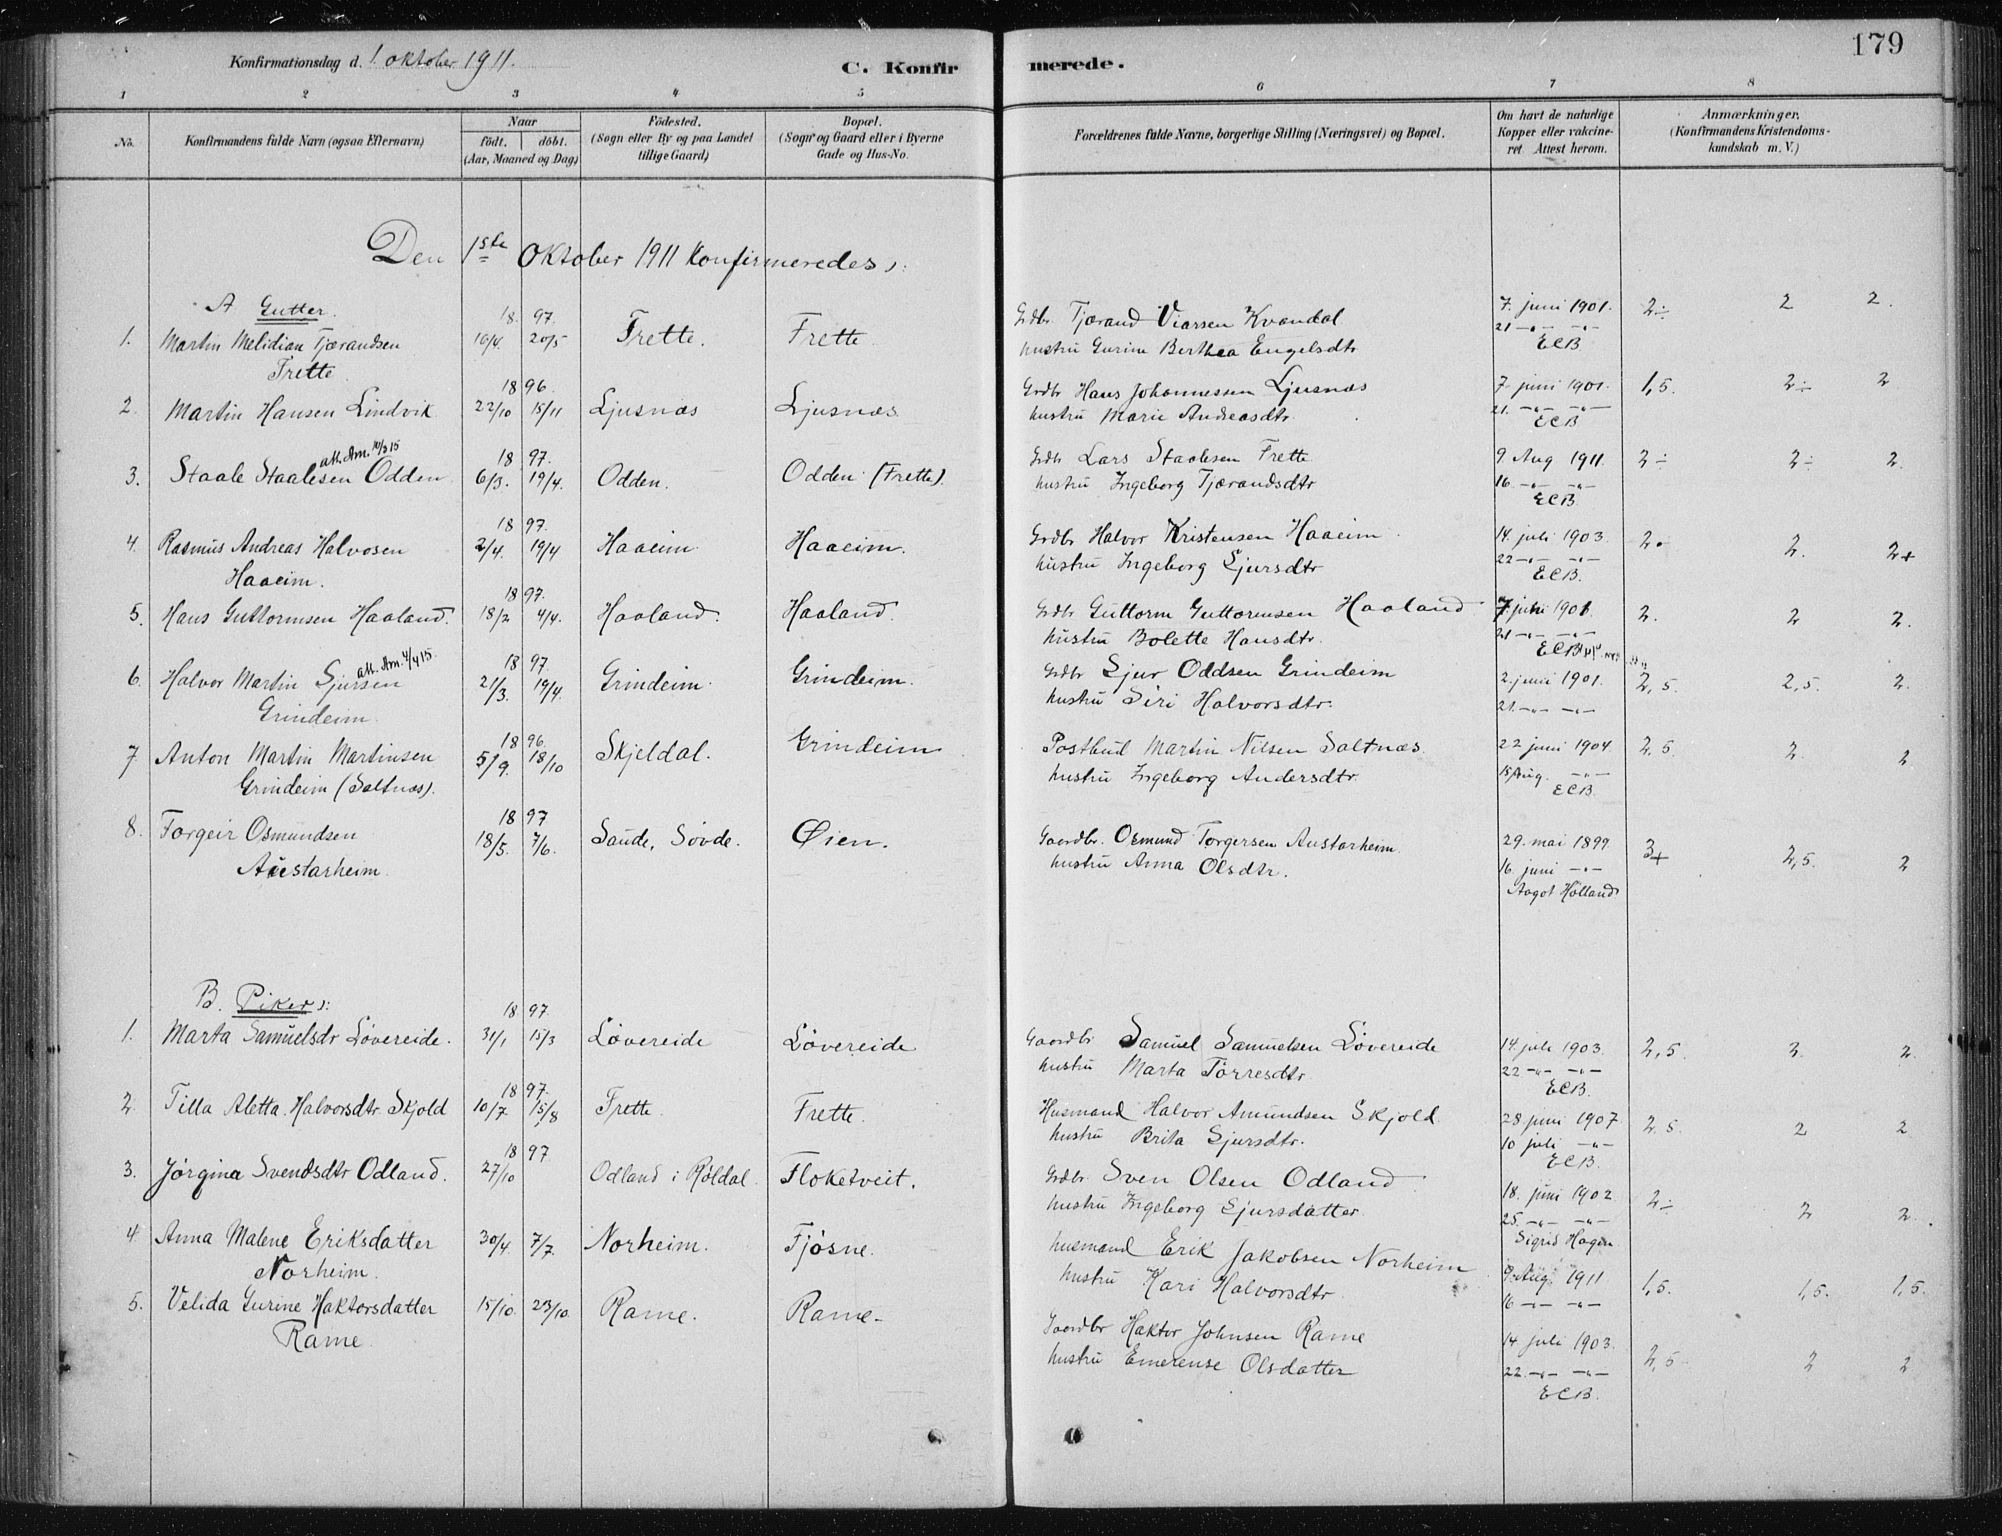 Konfirmationsdag d. 1. oktober 1911.
C. Konfirmerede.
179
1 2 3 4 5 6 7 8
No.
Konfirmandens fulde Navn (ogsaa Efternavn)
Naar
födt. döbt.
(Aar, Maaned og Dag)
Födested.
(Sogn eller By og paa Landet
tillige Gaard)
Bopæl.
(Sogn og Gaard eller i Byerne
Gade og Hus-No.
Forældrenes fulde Navne, borgerlige Stilling (Næringsvei) og Bopæl.
Om havt de naturlige
Kopper eller vakcine-
ret. Attest herom.
Anmærkninger.
(Konfirmandens Kristendoms-
kundskab m. V.)
Den 1ste oktober 1911 konfirmeredes:
A Gutter.
18 97.
1. Martin Melidian Tjærandsen 16/4. 20/5 Frette. Frette Grdbr. Tjærand Viarsen Kvandal 7. juni 1901. 2÷ 2 2.
Frette hustru Gurine Berthea Engelsdtr 21 -"- -"- ECB
18 96.
2. Martin Hansen Lindvik 22/10 15/11 Ljusnæs Ljusnæs Grdbr Hans Johannessen Ljusnæs 7. juni 1901. 1,5. 2÷ 2
hustru Marie Andreasdtr. 21. -"- -"- ECB
att. Am. 10/3 15
18 97.
3. Staale Staalesen Odden 6/3. 19/4. Odden. Odden (Frette). Grdbr Lars Staalesen Frette 9 Aug 1911. 2÷ 2÷ 2.
hustru Ingeborg Tjærandsdtr 16. -"- -"- ECB
18 97.
4. Rasmus Andreas Halvosen 2/4. 19/4 Haaeim Haaeim. Grdbr Halvor Kristensen Haaeim 14. juli 1903. 2. 2. 2+
Haaeim. hustru Ingeborg Sjursdtr 22 -"- -"- ECB.
18 97.
5. Hans Guttormsen Haaland. 18/2 4/4. Haaland. Haaland. Grdbr Guttorm Guttormsen Haaland 7. juni 1901. 2. 2 2.
hustru Bolette Hansdtr. 21 -"- -"- ECB
att. Am. 4/4 15.
18 97.
6. Halvor Martin Sjursen 21/3. 19/4. Grindeim. Grindeim. Grdbr Sjur Oddsen Grindeim 2. juni 1901. 2,5. 2,5. 2.
Grindeim. hustru Siri Halvorsdtr. 21. -"- -"-
18 96.
7 Anton Martin Martinsen 5/9. 18/10 Skjeldal. Grindeim Postbud Martin Nilsen Saltnæs. 22 juni 1904. 2,5. 2. 2
Grindeim (Saltnæs). hustru Ingeborg Andersdtr. 15 Aug. -"- ECB.
18 97
8. Torgeir Osmundsen 18/5. 7/6. Saude, Søvde. Øien. Gaardbr. Osmund Torgersen Austarheim 29. mai 1899. 3+ 2,5. 2
Austarheim. hustru Anna Olsdtr. 16. juni -"- Aagot Hølland
B. Piker:
18 97
1. Marta Samuelsdtr Løvereide. 31/1 15/3 Løvereide Løvereide Gaardbr Samuel Samuelsen Løvereide 14. juli 1903. 2,5. 2. 2.
hustru Marta Tørresdtr. 22 -"- -"- ECB.
18 97.
2. Tilla Aletta Halvorsdtr. Skjold 10/7 15/8 Frette. Frette. Husmand Halvor Amundsen Skjold 28 juni 1907. 2,5. 2 2
hustru Brita Sjursdtr. 10 juli -"- ECB.
18 97
3. Jørgina Svendsdtr Odland. 27/10 Odland i Røldal. Floketveit. Grdbr Sven Olsen Odland 18. juni 1902 2÷ 2 2.
hustru Ingeborg Sjursdatter 25. -"- -"- Sigrid Hagen
4. Anna Malene Eriksdatter 30/4 7/7. Norheim. Fjøsne. husmand Erik Jakobsen Norheim 9. Aug. 1911 1,5. 1,5. 1,5.
Norheim. hustru Kari Halvorsdtr. 16 -"- -"-
5. Velida Gurine Haktorsdatter 15/10. 23/10. Rame. Rame. Gaardbr Haktor Johnsen Rame 14 juli 1903. 2,5 2 2
Rame hustru Emerense Olsdatter 22. -"- -"- ECB.